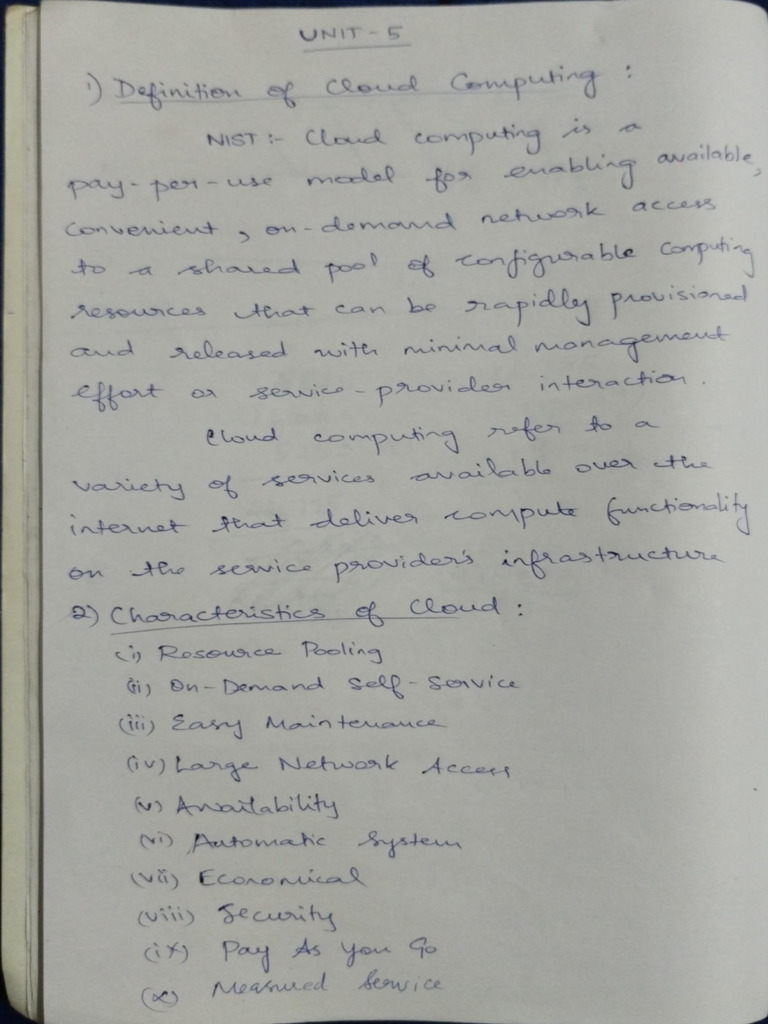 UNIT - 5
1) Definition of Cloud Computing :
NIST :- Cloud computing is a
pay-per-use model for enabling available,
convenient, on-demand network access
to a shared pool of configurable computing
resources that can be rapidly provisioned
and released with minimal management
effort or service-provider interaction.
Cloud computing refer to a
variety of services available over the
internet that deliver compute functionality
on the service provider's infrastructure
2) Characteristics of Cloud :
(i) Resource Pooling
(ii) On-Demand Self-Service
(iii) Easy Maintenance
(iv) Large Network Access
(v) Availability
(vi) Automatic System
(vii) Economical
(viii) Security
(ix) Pay As You Go
(x) Measured Service